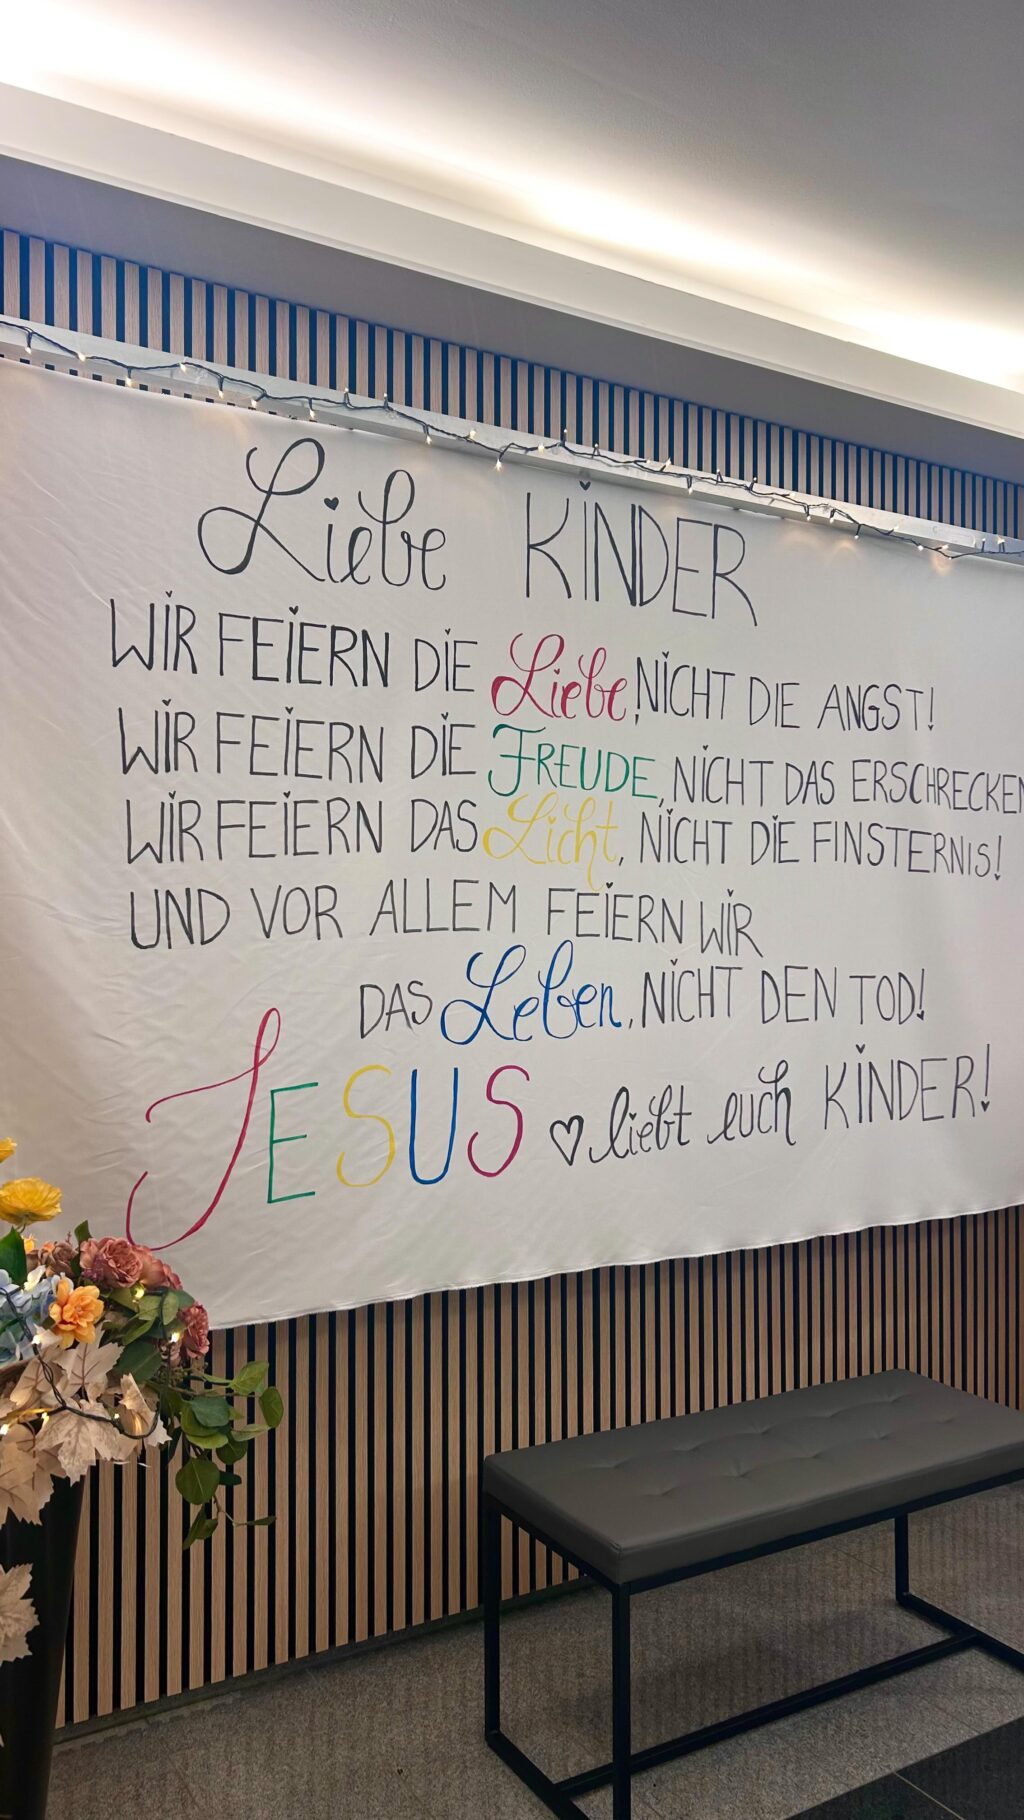 Liebe KINDER
WIR FEIERN DIE Liebe, NICHT DIE ANGST!
WIR FEIERN DIE FREUDE, NICHT DAS ERSCHRECKEN
WIR FEIERN DAS Licht, NICHT DIE FINSTERNIS!
UND VOR ALLEM FEIERN WIR
DAS Leben, NICHT DEN TOD!
JESUS ♡ liebt euch KINDER!